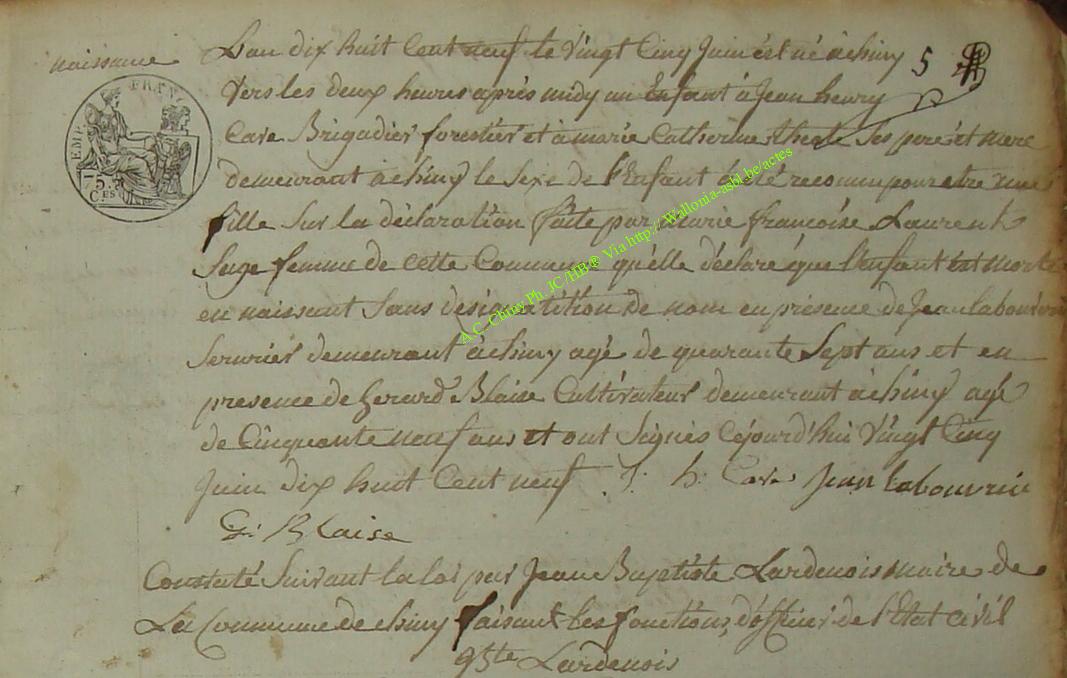 naissance
L'an dix huit Cent neuf le Vingt Cinq Juin est né a chiny
5
Vers les deux heures après midy un Enfant à Jean henry
Cave Brigadier forestier et à marie Catherine ses pere et mere
demeurant a chiny le Sexe de l'Enfant a été reconnu pour etre une
fille Sur la déclaration faite par marie françoise Laurent
Sage femme de cette Commune qu'elle déclare que l'enfant est morte
en naissant Sans de nom en présence de Jean labouverie
Serurier demeurant à chiny agé de quarante Sept ans et en
presence de Gerard Blaise Cultivateur demeurant à chiny agé
de Cinquante neuf ans et ont Signés Cejourd'hui Vingt Cinq
Juin dix huit Cent neuf . J. h. Cave Jean labouverie
G: Blaise
Constaté Suivant la loi par Jean Baptiste Lardenois maire de
La Commune de chiny faisant les fonctions d'officier de l'Etat Civil
Lardenois
EMP. FRAN.
75
C.ES
A.C. Chiny Ph. JC/HB® Via http://Wallonia-asbl.be/actes